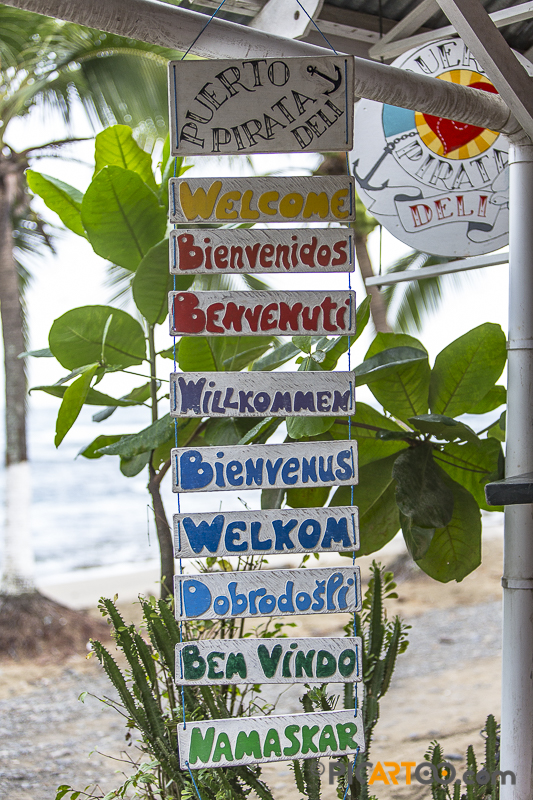 PUERTO
PIRATA
DELI
PUERTO
PIRATA
DELI
WELCOME
Bienvenidos
BENVENUTI
WILLKOMMEN
BIENVENUS
WELKOM
Dobrodošli
BEM VINDO
NAMASKAR